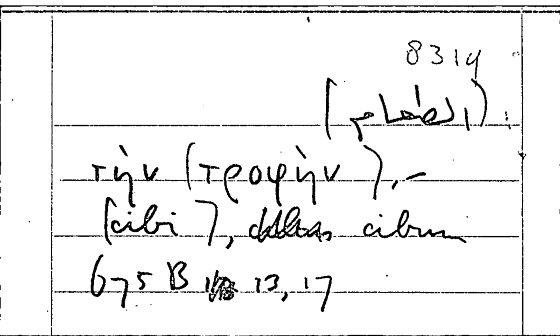 8314
(الطعام)
τὴν (τροφὴν).–
(cibi), cibum
675 B 13, 17